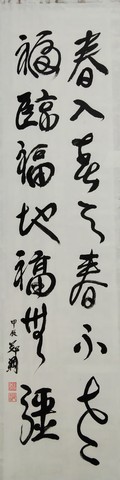 春入春天春不老
福臨福地福無疆
甲辰